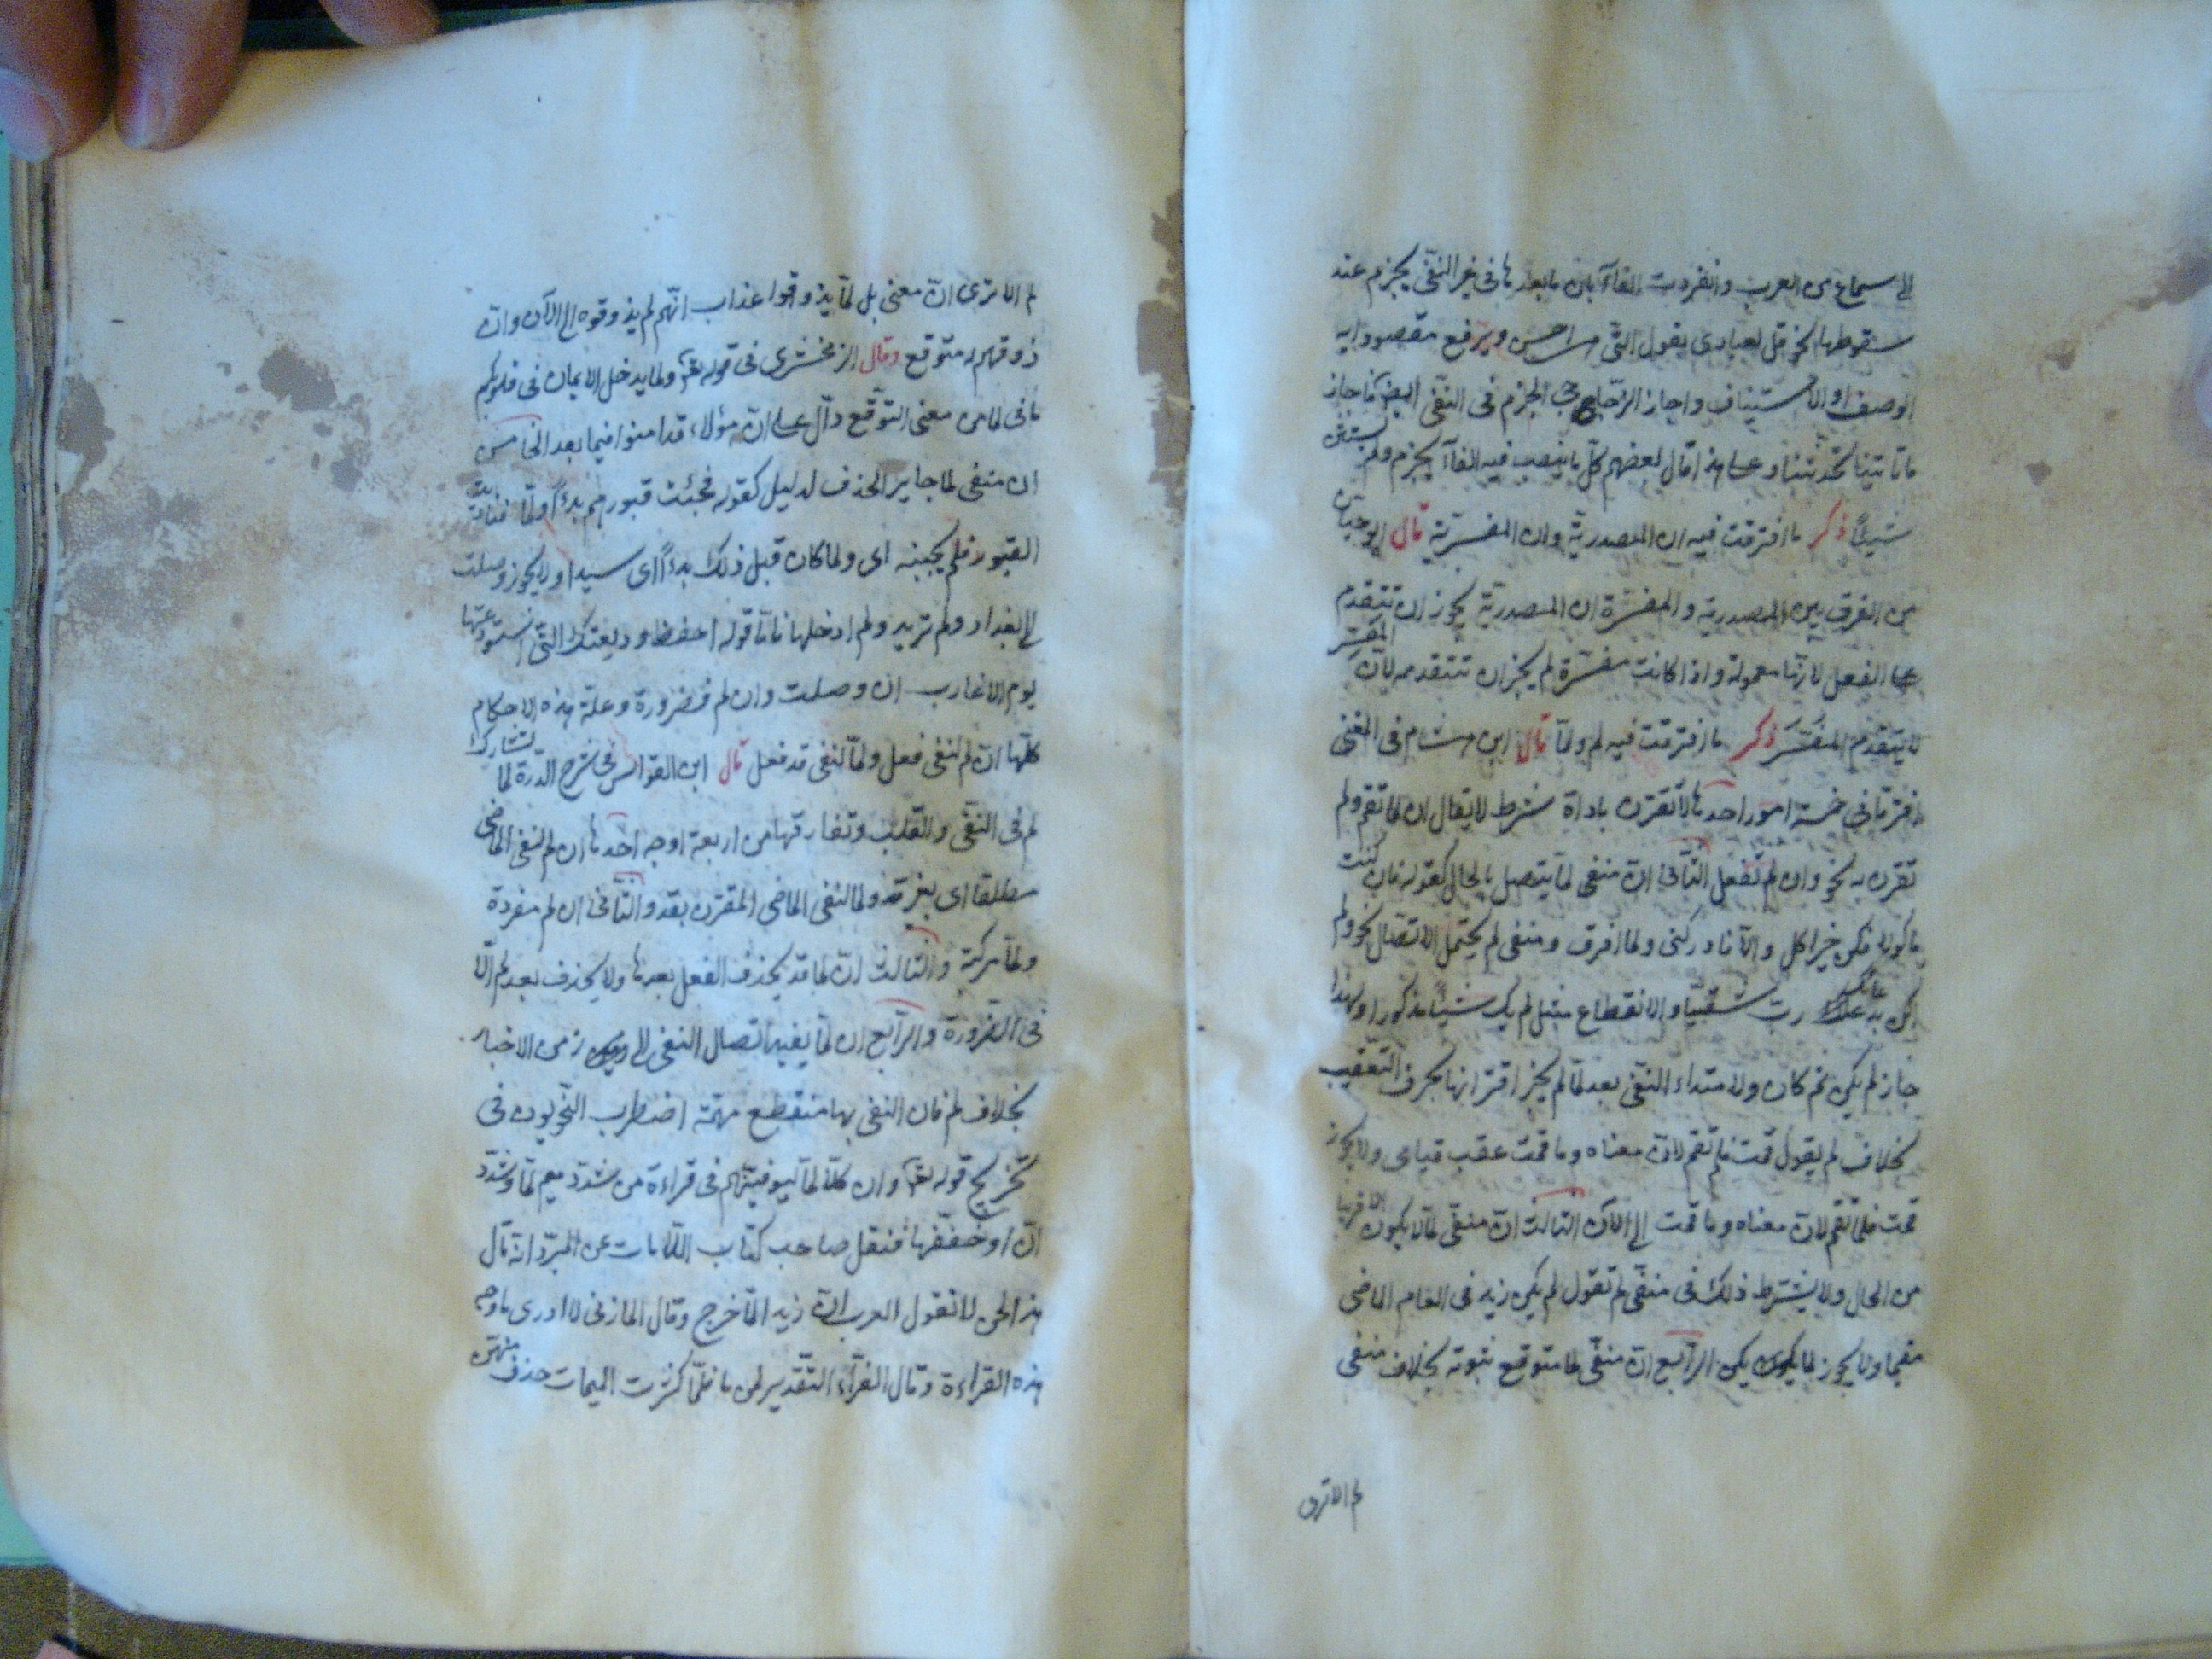 الى سماع من العرب وانفردت الفاآ بان مابعدها فى غير النفى يجزم عند
سقوطها نحو قل لعبادى يقول التى هى احسن ويرفع مقصودا به
الوصف او الاستيناف واجاز الزجاجى الجزم فى النفى ايضا فاجاز
ما تاتينا تحدثنا وعلى هذا قال بعضهم كلّ ما ينصب فيه الفاآ يجزم ولم يستثن
شيئًا ذكر ما افترقت فيه ان المصدريّة وان المفسّريّة قال ابو حيان
من الفرق بين المصدرية والمفسّرة ان المصدريّة يجوز ان تتقدم
على الفعل لانّها معمولة واذا كانت مفسّرة لم يجز ان تتقدمه لانّ المفسِّر
لا يتقدم المفسَّر ذكر ما افترقت فيه لم ولمّا قال ابن هشام فى المغنى
افترقا فى خمسة امور احدها لا تقترن باداة شرط لا يقال ان لما تقم ولم
تقترن به نحو وان لم تفعل الثّانى انّ منفى لمّا يتصل بالحال كقوله فان كنت
ماكولا فكن خيرا كل والّا فادركنى ولما امزق ومنفى لم يحتمل الاتصال نحو ولم
اكن بدعائك ربّ شقيّا والانقطاع مثل لم يك شيئًا مذكورا ولهذا
جاز لم يكن ثم كان ولامتداد النفى بعد لمّا لم يجز اقترانها بحرف التعقيب
بخلاف لم يقول قمت فلم تقم لانّ معناه وما قمت عقب قيامى ولا يجوز
قمت فلما تقم لانّ معناه وما قمت الى الآن الثالث انّ منفى لمّا لا يكون الا قريبا
من الحال ولا يشترط ذلك فى منفى لم تقول لم يكن زيد فى العام الماضى
مقيما ولا يجوز لما يكن الرّابع انّ منفى لما متوقع ثبوته بخلاف منفى
لم الا ترى
لم الا ترى انّ معنى بل لمّا يذوقوا عذاب انّهم لم يذوقوه الى الآن وانّ
ذوقهم له متوقع وقال الزمخشرى فى قوله تعالى ولما يدخل الايمان فى قلوبكم
ما فى لما من معنى التوقع دالّ على انّ هؤلاء قد امنوا فيما بعد الخامس
ان منفى لما جايز الحذف لدليل كقوله فجئت قبورهم بدءًا ولمّا فناديت
القبور فلم يجبنه اى ولما كان قبل ذلك بدءًا اى سيدا ولا يجوز وصلت
الى بغداد ولم تريد ولم ادخلها فامّا قوله احفظ وديعتك التى استودعتها
يوم الاغارب ان وصلت وان لم فضرورة وعلة هذه الاحكام
كلّها انّ لم لنفى فعل ولمّا لنفى قد فعل قال ابن القواس فى شرح الدّرة لما تشارك
لم فى النفى والقلب وتفارقها من اربعة اوجه احدها ان لم لنفى الماضى
مطلقا اى بغير قد ولما لنفى الماضى المقترن بقد والثّانى ان لم مفردة
ولمّا مركبة والثالث انّ لما قد يحذف الفعل بعدها ولا يحذف بعد لم الّا
فى الضّرورة والرّابع ان لمّا يفيد اتصال النفى الى زمن الاخبار
بخلاف لم فان النفى بها منقطع مهمّة اضطرب النّحويون فى
تخريج قوله تعالى وان كلّا لمّا ليوفينّهم فى قراءة من شدّد ميم لمّا وشدّد
انّ او خفّفها فنقل صاحب كتاب اللّامات عن المبرّد انه قال
هذا لحن لا تقول العرب انّ زيدا لمّا خرج وقال المازنى لا ادرى ما وجه
هذه القراءة وقال الفرّاء التّقدير لمن ما فلمّا كثرت الميمات حذف منهنّ